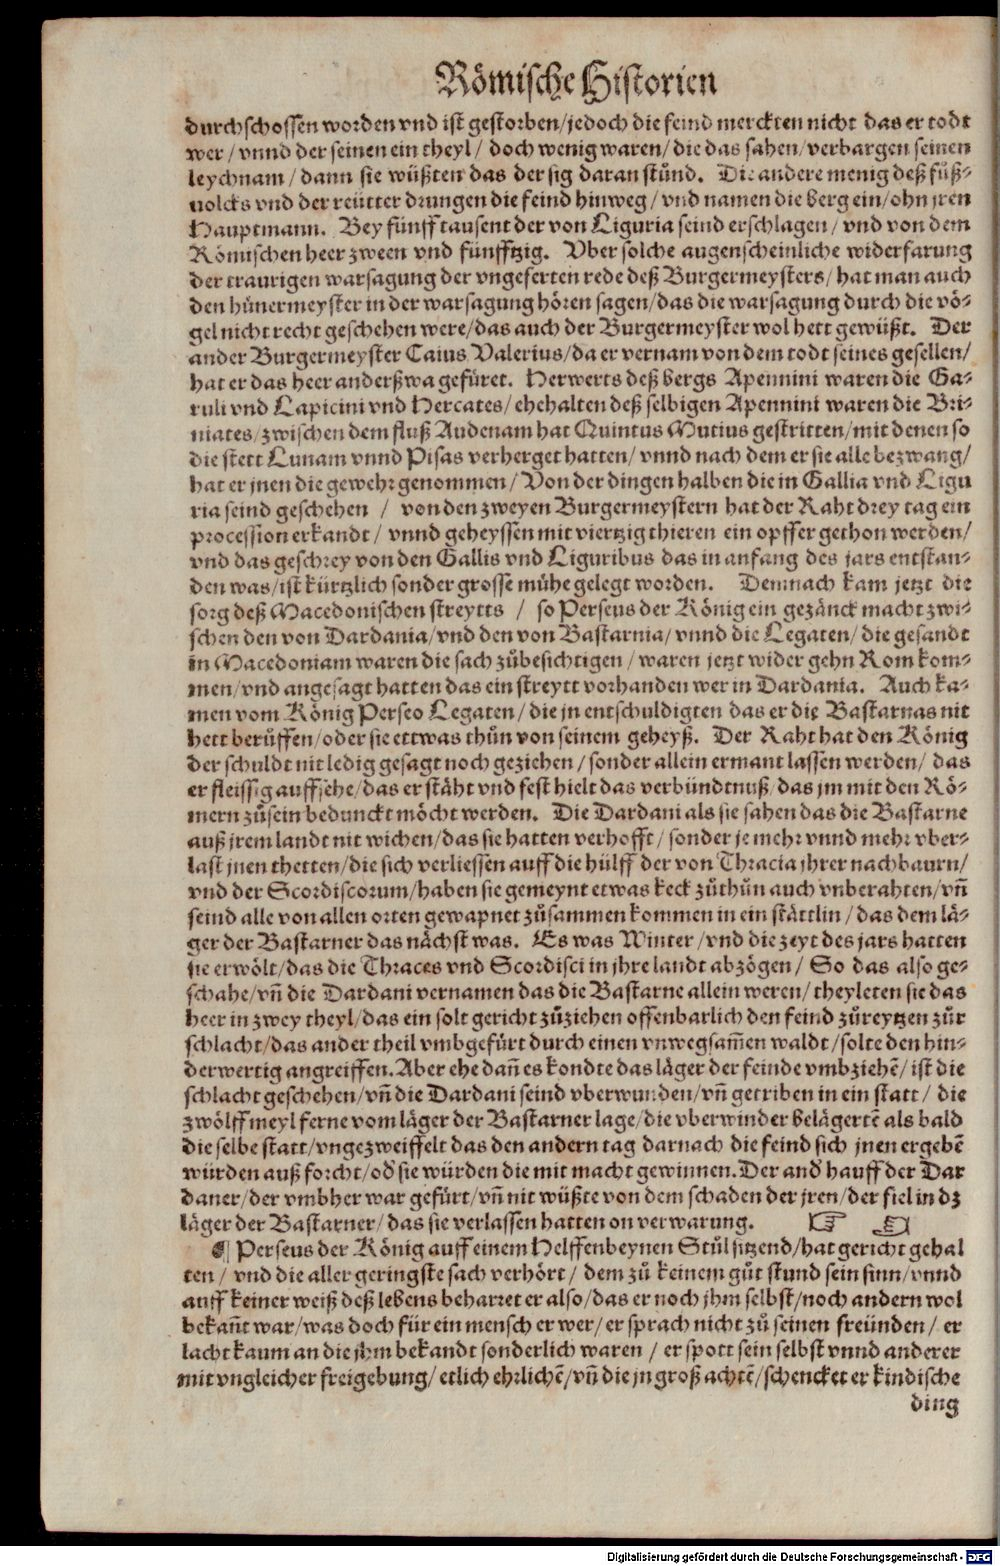 Römische Historien
durchschossen worden vnd ist gestorben/ jedoch die feind merckten nicht das er todt
wer/ vnnd der seinen ein theyl/ doch wenig waren/ die das sahen/ verbargen seinen
leychnam/ dann sie wüßten das der sig daran stůnd. Die andere menig deß fůß-
uolcks vnd der reütter drungen die feind hinweg/ vnd namen die berg ein/ ohn jren
Hauptmann. Bey fünff tausent der von Liguria seind erschlagen/ vnd von dem
Römischen heer zween vnd fünfftzig. Vber solche augenscheinliche widerfarung
der traurigen warsagung der vngeferten rede deß Burgermeysters/ hat man auch
den hünermeyster in der warsagung hören sagen/ das die warsagung durch die vö-
gel nicht recht geschehen were/ das auch der Burgermeyster wol hett gewüßt. Der
ander Burgermeyster Caius Valerius/ da er vernam von dem todt seines gesellen/
hat er das heer anderßwa gefüret. Herwerts deß bergs Apennini waren die Ga-
ruli vnd Lapicini vnd Hercates/ ehehalten deß selbigen Apennini waren die Bri-
niates/ zwischen dem fluß Audenam hat Quintus Mutius gestritten/ mit denen so
die stett Lunam vnnd Pisas verherget hatten/ vnnd nach dem er sie alle bezwang/
hat er jnen die gewehr genommen/ Von der dingen halben die in Gallia vnd Ligu
ria seind geschehen / von den zweyen Burgermeystern hat der Raht drey tag ein
procession erkandt/ vnnd geheyssen mit viertzig thieren ein opffer gethon werden/
vnd das geschrey von den Gallis vnd Liguribus das in anfang des jars entstan-
den was/ ist kürtzlich sonder grosse mühe gelegt worden. Demnach kam jetzt die
sorg deß Macedonischen streytts / so Perseus der König ein gezänck macht zwi-
schen den von Dardania/ vnd den von Bastarnia/ vnnd die Legaten/ die gesandt
in Macedoniam waren die sach zůbesichtigen/ waren jetzt wider gehn Rom kom-
men/ vnd angesagt hatten das ein streytt vorhanden wer in Dardania. Auch ka-
men vom König Perseo Legaten/ die jn entschuldigten das er die Bastarnas nit
hett berůffen/ oder sie ettwas thůn von seinem geheyß. Der Raht hat den König
der schuldt nit ledig gesagt noch geziehen/ sonder allein ermant lassen werden/ das
er fleissig auffsehe/ das er stäht vnd fest hielt das verbündtnuß/ das jm mit den Rö-
mern zůsein bedunckt möcht werden. Die Dardani als sie sahen das die Bastarne
auß jrem landt nit wichen/ das sie hatten verhofft/ sonder je mehr vnnd mehr vber-
last jnen thetten/ die sich verliessen auff die hülff der von Thracia jhrer nachbaurn/
vnd der Scordiscorum/ haben sie gemeynt etwas keck zůthůn auch vnberahten/ vñ
seind alle von allen orten gewapnet zůsammen kommen in ein stättlin/ das dem lä-
ger der Bastarner das nächst was. Es was Winter/ vnd die zeyt des jars hatten
sie erwölt/ das die Thraces vnd Scordisci in jhre landt abzögen/ So das also ge-
schahe/ vñ die Dardani vernamen das die Bastarne allein weren/ theyleten sie das
heer in zwey theyl/ das ein solt gericht zůziehen offenbarlich den feind zůreytzen zůr
schlacht/ das ander theil vmbgefürt durch einen vnwegsam̃en waldt/ solte den hin-
derwertig angreiffen. Aber ehe dañ es kondte das läger der feinde vmbziehẽ/ ist die
schlacht geschehen/ vñ die Dardani seind vberwunden/ vñ getriben in ein statt/ die
zwölff meyl ferne vom läger der Bastarner lage/ die vberwinder belägertẽ als bald
die selbe statt/ vngezweiffelt das den andern tag darnach die feind sich jnen ergebẽ
würden auß forcht/ od̃ sie würden die mit macht gewinnen. Der and̃ hauff der Dar
daner/ der vmbher war gefürt/ vñ nit wüßte von dem schaden der jren/ der fiel in dz
läger der Bastarner/ das sie verlassen hatten on verwarung. ☞ ☜
¶ Perseus der König auff einem Helffenbeynen Stůl sitzend/ hat gericht gehal
ten/ vnd die aller geringste sach verhört/ dem zů keinem gůt stund sein sinn/ vnnd
auff keiner weiß deß lebens beharret er also/ das er noch jhm selbst/ noch andern wol
bekañt war/ was doch für ein mensch er wer/ er sprach nicht zů seinen freünden/ er
lacht kaum an die jhm bekandt sonderlich waren / er spott sein selbst vnnd anderer
mit vngleicher freigebung/ etlich ehrlichẽ/ vñ die jn groß achtẽ/ schencket er kindische
ding
Digitalisierung gefördert durch die Deutsche Forschungsgemeinschaft - DFG